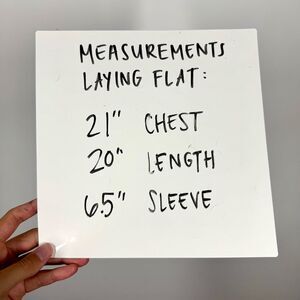 MEASUREMENTS
LAYING FLAT:
21" CHEST
20" LENGTH
6.5" SLEEVE